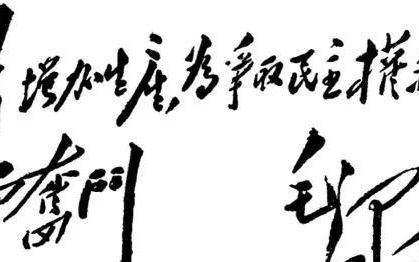 增加生產，為爭取民主權
奮鬥
毛